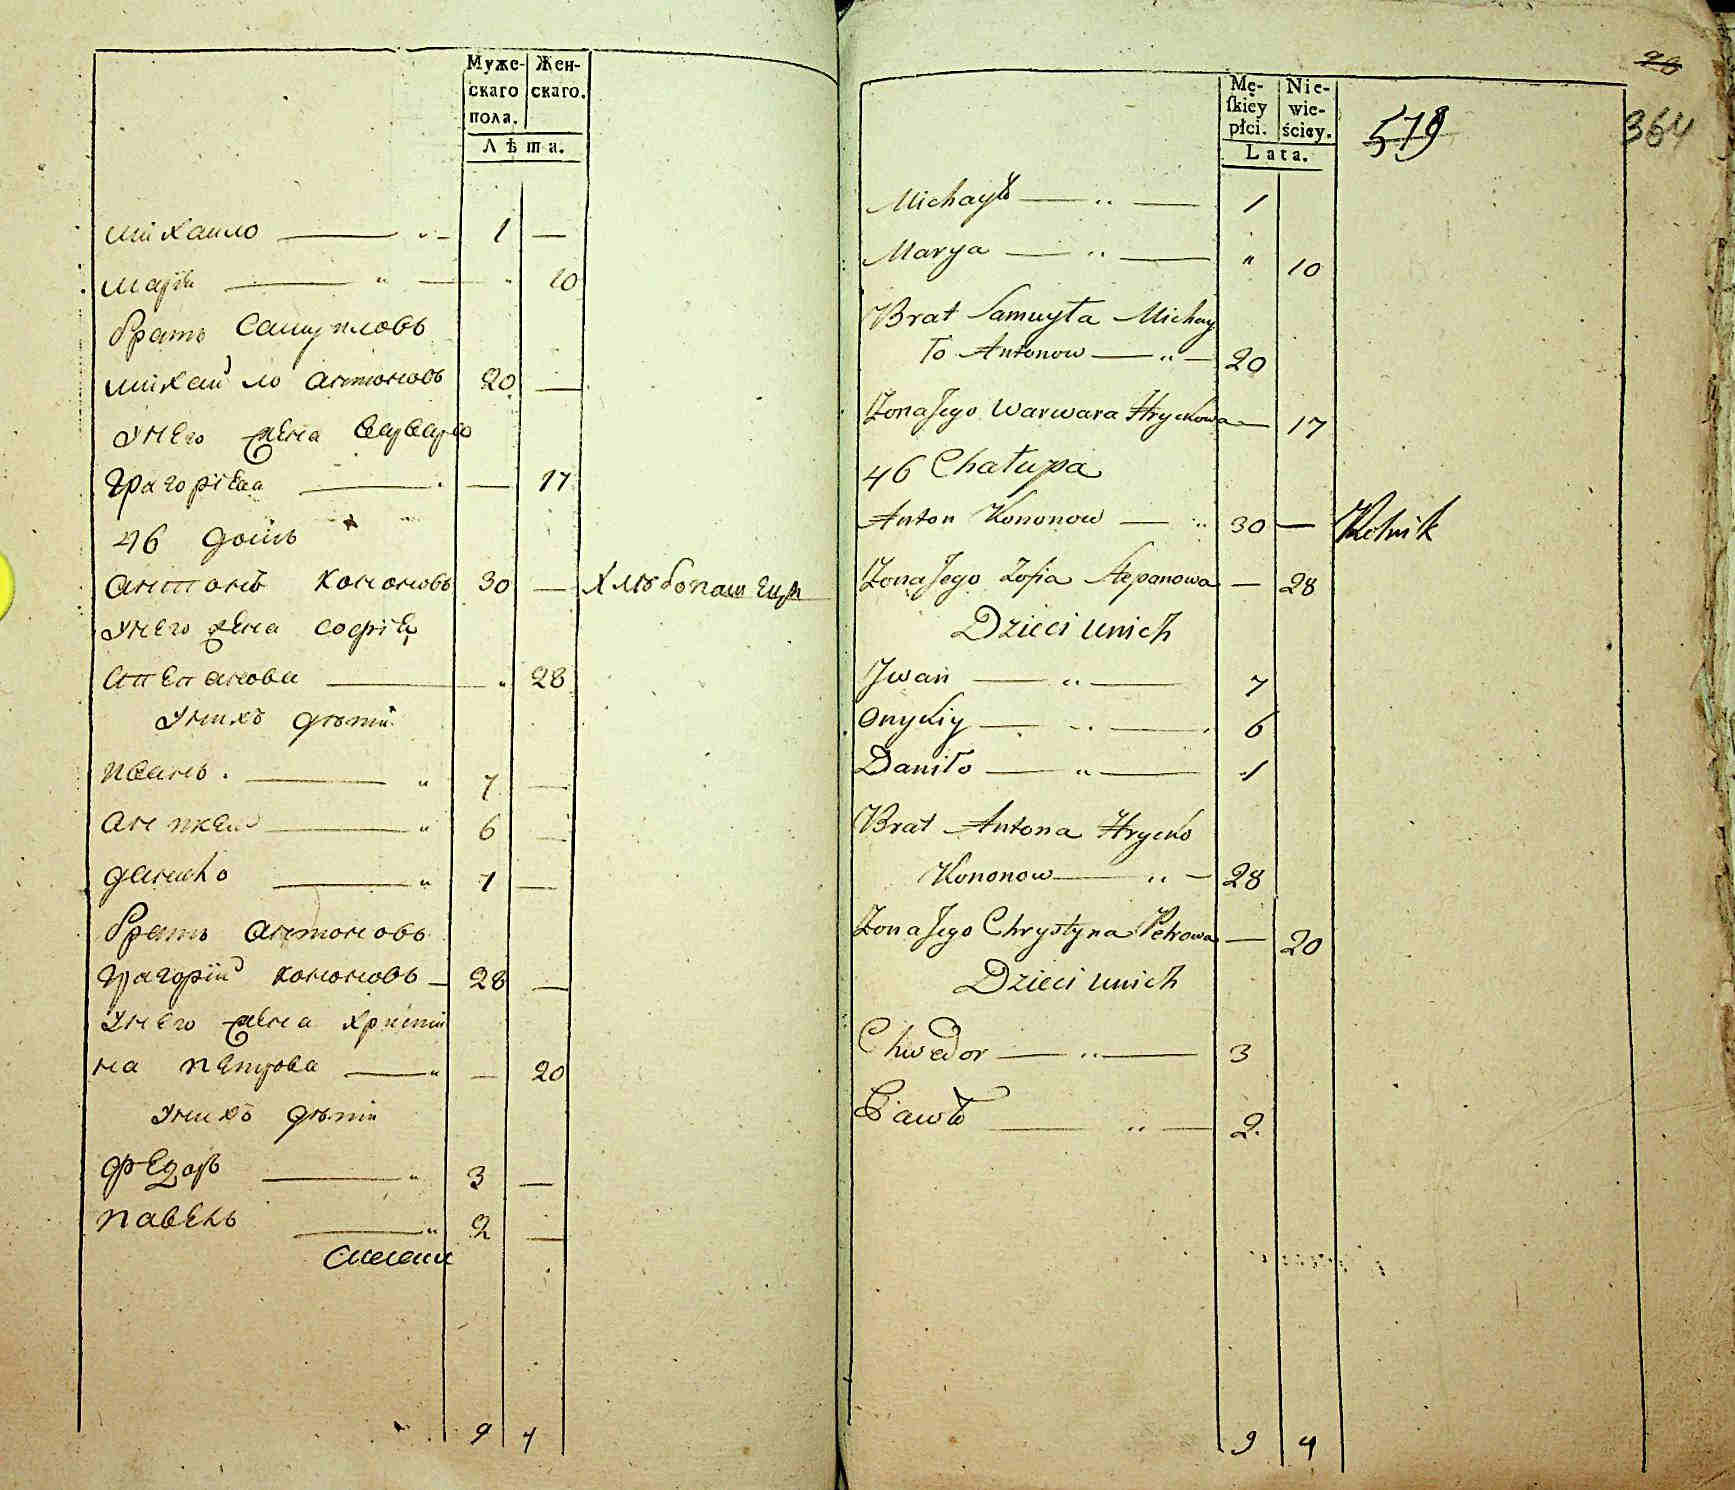 Муже-
скаго
пола.
Жен-
скаго.
Лѣта.
Михайло 1 —
Марія 10
братъ Самуиловъ
Михайло Антоновъ 20 —
У него жена Варвара
Григоріева — 17
46 домъ
Антонъ Кононовъ 30 — Хлѣбопашецъ
У него жена Софіѣ
Степанова 28
У нихъ дѣти
Иванъ 7 —
Аникей 6 —
Данило 1 —
братъ Антоновъ
Григорій Кононовъ 28 —
У него жена Христи
на Петрова — 20
У нихъ дѣти
Федоръ 3 —
Павелъ 2 —
9 4
Mę-
skiey
płci.
Nie-
wie-
ściey.
Lata.
20
579
364
Michayło 1
Marya " 10
Brat Samuyła Michay
ło Antonow 20
Żona Jego Warwara Hryckowa — 17
46 Chałupa
Anton Kononow 30 — Rolnik
Żona Jego Zofia Stepanowa — 28
Dzieci u nich
Jwan 7
Onykiy 6
Daniło 1
Brat Antona Hrycko
Kononow 28
Żona Jego Chrystyna Petrowa — 20
Dzieci u nich
Chwedor 3
Pawło 2
9 4